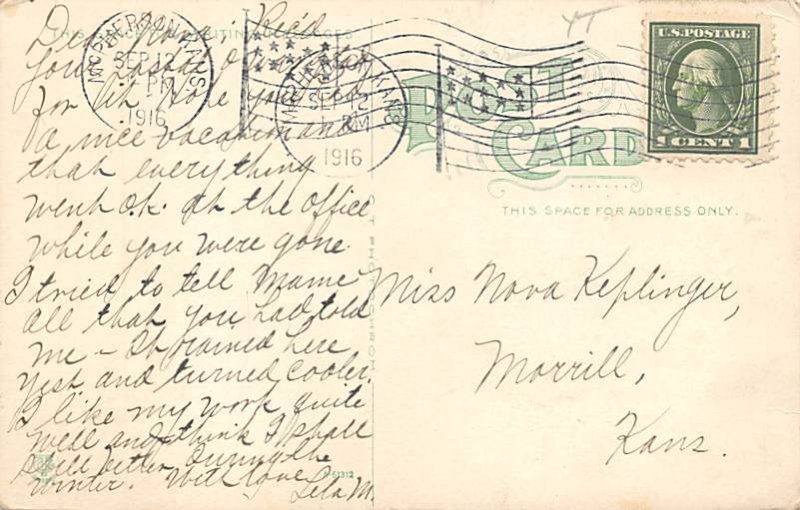 Dear Nova: Rec'd
your
for
a nice vacation and
that everything
went O.K. at the office
while you were gone.
I tried to tell Mame
all that you had told
me – It rained here
yest and turned cooler.
I like my work quite
well and think I shall
still better during the
winter. With love
Lela M.
McPHERSON KANS.
SEP 12
PM
1916
McPHERSON KANS.
SEP 12
PM
1916
POST
CARD
THIS SPACE FOR ADDRESS ONLY.
U.S. POSTAGE
1 CENT 1
Miss Nova Keplinger,
Morrill,
Kans.